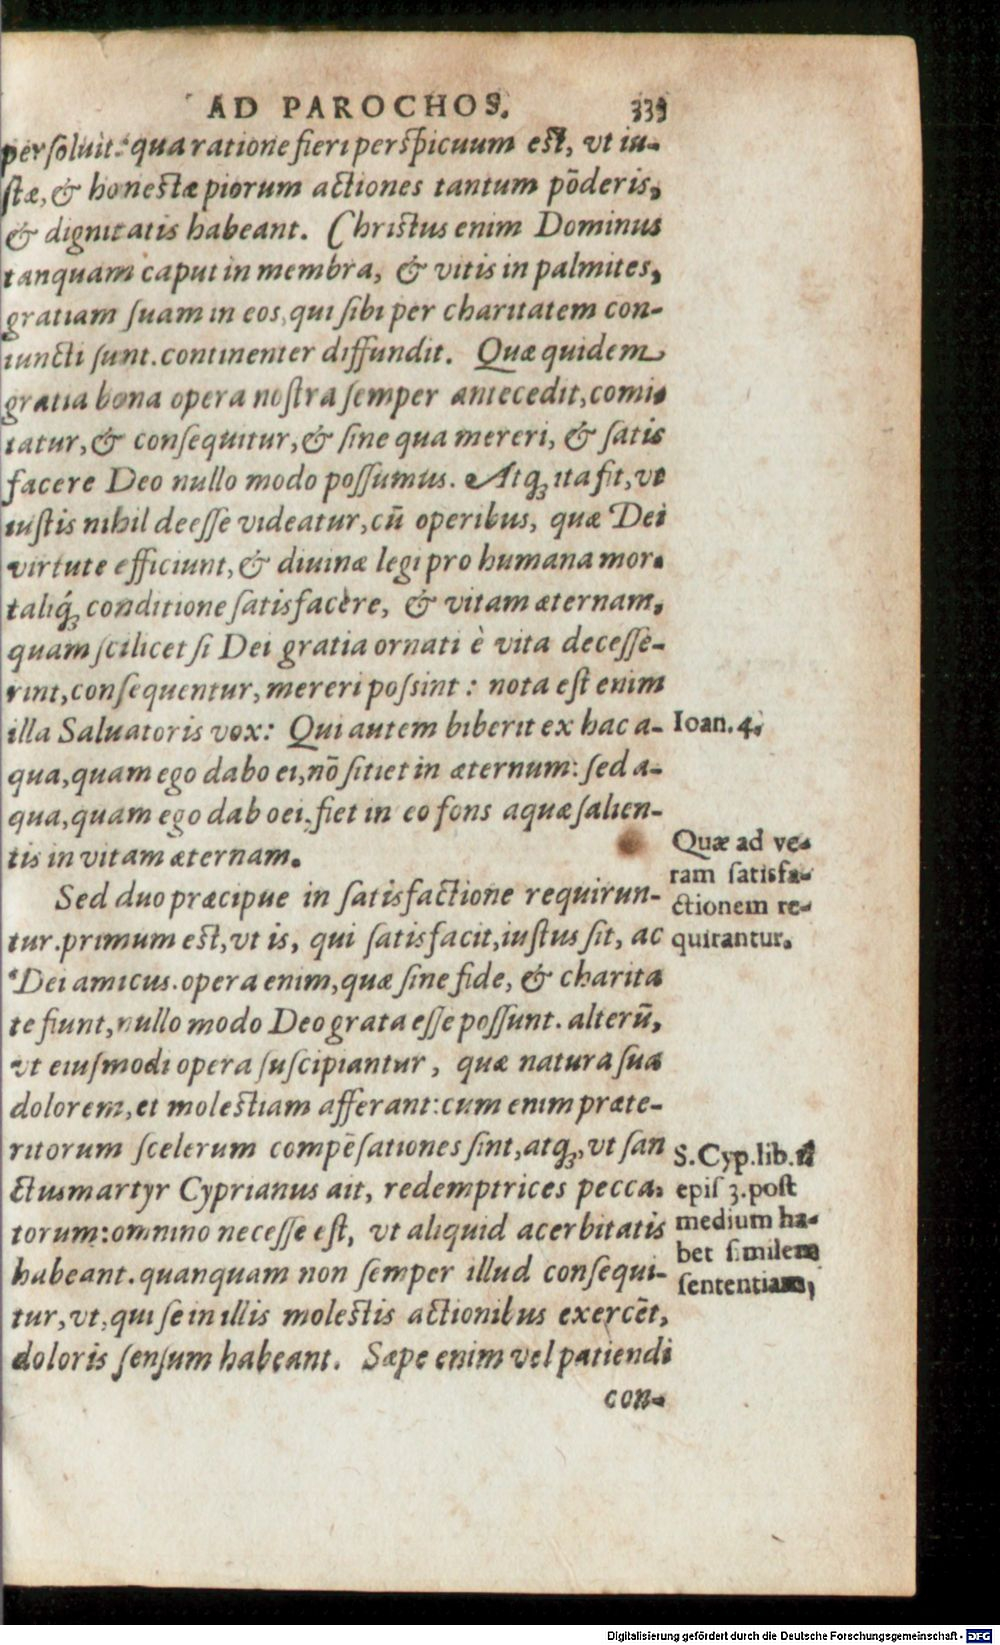 AD PAROCHOS. 339
persoluit: qua ratione fieri perspicuum est, vt iu-
stæ, & honestæ piorum actiones tantum põderis,
& dignitatis habeant. Christus enim Dominus
tanquam caput in membra, & vitis in palmites,
gratiam suam in eos, qui sibi per charitatem con-
iuncti sunt. continenter diffundit. Quæ quidem
gratia bona opera nostra semper antecedit, comi-
tatur, & consequitur, & sine qua mereri, & satis
facere Deo nullo modo possumus. Atq; ita fit, vt
iustis nihil deesse videatur, cū operibus, quæ Dei
virtute efficiunt, & diuinæ legi pro humana mor-
taliq́; conditione satisfacere, & vitam æternam,
quam scilicet si Dei gratia ornati è vita decesse-
rint, consequentur, mereri possint: nota est enim
illa Saluatoris vox: Qui autem biberit ex hac a-
qua, quam ego dabo ei, nō sitiet in æternum: sed a-
qua, quam ego dabo ei, fiet in eo fons aquæ salien-
tis in vitam æternam.
Ioan. 4.
Sed duo præcipue in satisfactione requirun-
tur. primum est, vt is, qui satisfacit, iustus sit, ac
Dei amicus. opera enim, quæ sine fide, & charita
te fiunt, nullo modo Deo grata esse possunt. alterū,
vt eiusmodi opera suscipiantur, quæ natura sua
dolorem, et molestiam afferant: cum enim præte-
ritorum scelerum compēsationes sint, atq;, vt san
ctus martyr Cyprianus ait, redemptrices pecca-
torum: omnino necesse est, vt aliquid acerbitatis
habeant. quanquam non semper illud consequi-
tur, vt, qui se in illis molestis actionibus exercēt,
doloris sensum habeant. Sæpe enim vel patiendi
con-
Quæ ad ve-
ram satisfa-
ctionem re-
quirantur.
S. Cyp. lib. 1
epis 3. post
medium ha-
bet similem
sententiam,
Digitalisierung gefördert durch die Deutsche Forschungsgemeinschaft - DFG